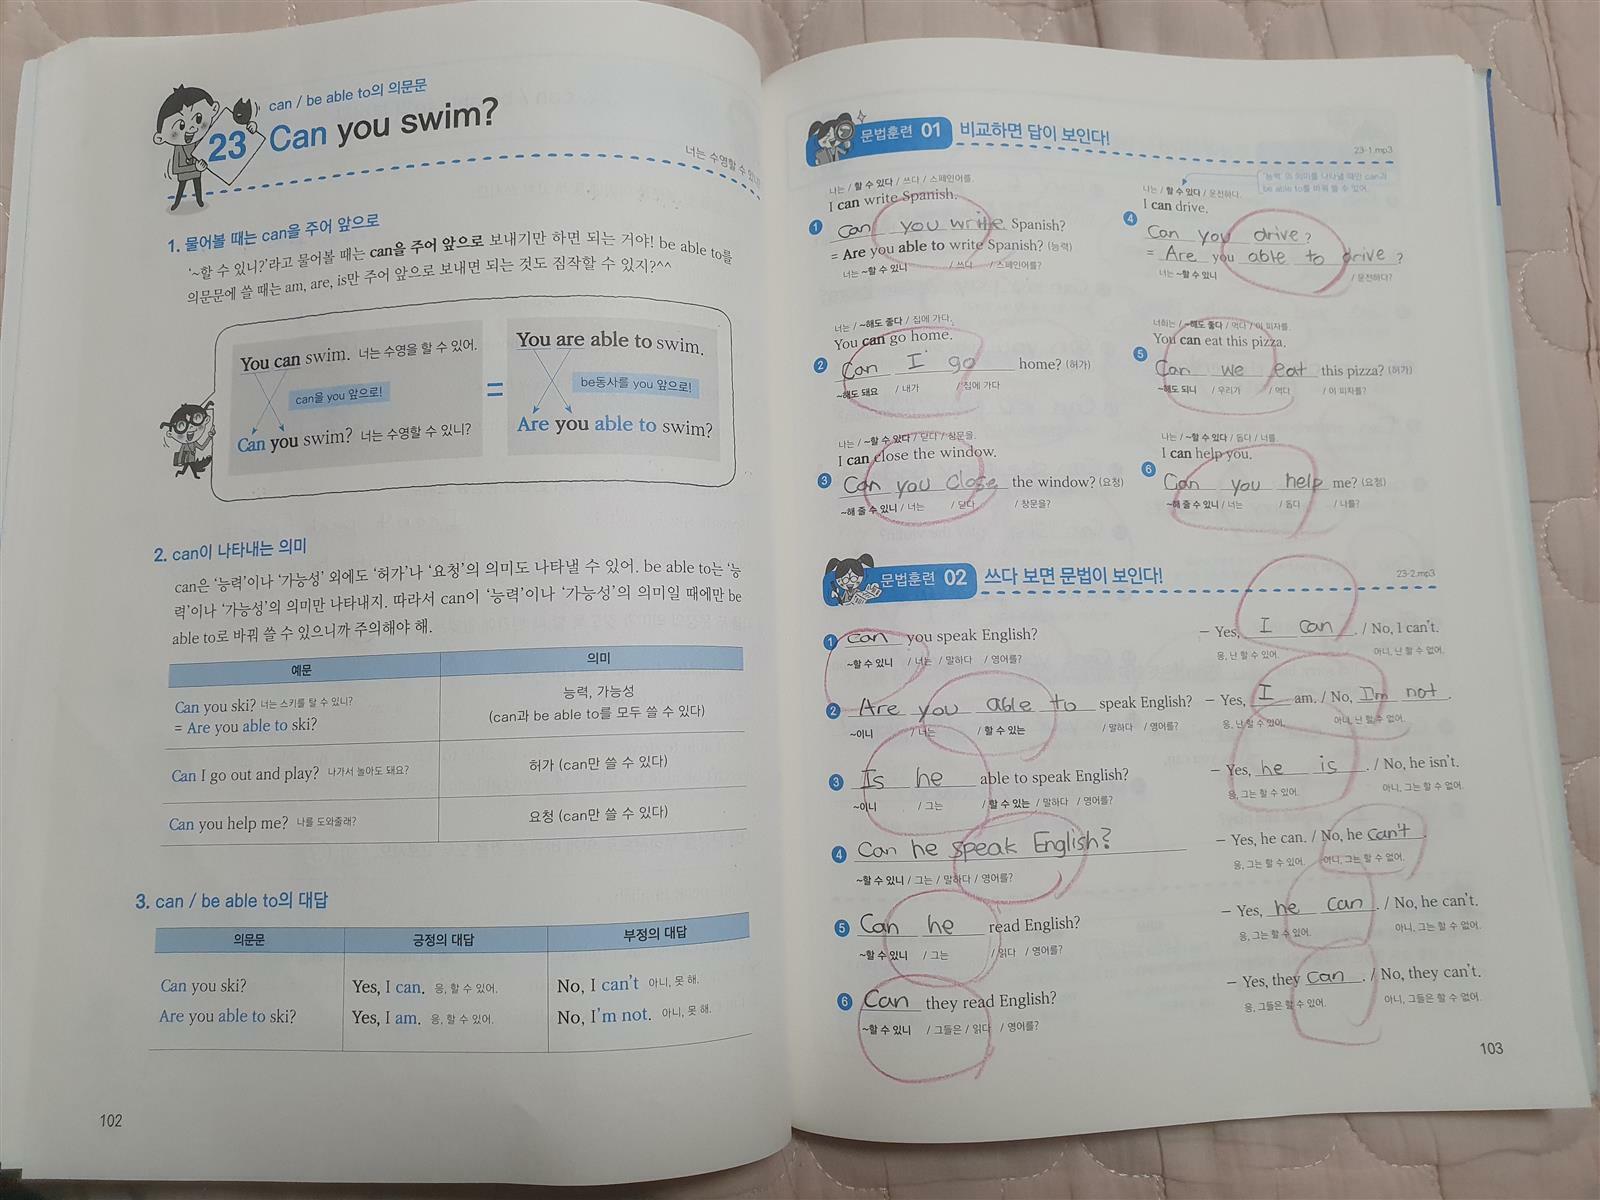 can / be able to의 의문문
23 Can you swim?
너는 수영할 수 있니?
1. 물어볼 때는 can을 주어 앞으로
'~할 수 있니?'라고 물어볼 때는 can을 주어 앞으로 보내기만 하면 되는 거야! be able to를
의문문에 쓸 때는 am, are, is만 주어 앞으로 보내면 되는 것도 짐작할 수 있지?^^
You can swim. 너는 수영을 할 수 있어.
can을 you 앞으로!
Can you swim? 너는 수영할 수 있니?
=
You are able to swim.
be동사를 you 앞으로!
Are you able to swim?
2. can이 나타내는 의미
can은 '능력'이나 '가능성' 외에도 '허가'나 '요청'의 의미도 나타낼 수 있어. be able to는 '능
력'이나 '가능성'의 의미만 나타내지. 따라서 can이 '능력'이나 '가능성'의 의미일 때에만 be
able to로 바꿔 쓸 수 있으니까 주의해야 해.
예문 의미
Can you ski? 너는 스키를 탈 수 있니?
= Are you able to ski?
능력, 가능성
(can과 be able to를 모두 쓸 수 있다)
Can I go out and play? 나가서 놀아도 돼요? 허가 (can만 쓸 수 있다)
Can you help me? 나를 도와줄래? 요청 (can만 쓸 수 있다)
3. can / be able to의 대답
의문문 긍정의 대답 부정의 대답
Can you ski? Yes, I can. 응, 할 수 있어. No, I can't 아니, 못 해.
Are you able to ski? Yes, I am. 응, 할 수 있어. No, I'm not. 아니, 못 해.
102
문법훈련 01 비교하면 답이 보인다!
23-1.mp3
'능력'의 의미를 나타낼 때만 can과
be able to를 바꿔 쓸 수 있어.
나는 / 할 수 있다 / 쓰다 / 스페인어를.
I can write Spanish.
1 Can you write Spanish?
= Are you able to write Spanish? (능력)
너는 ~할 수 있니 / 쓰다 / 스페인어를?
너는 / ~해도 좋다 / 집에 가다.
You can go home.
2 Can I go home? (허가)
~해도 돼요 / 내가 / 집에 가다
나는 / ~할 수 있다 / 닫다 / 창문을.
I can close the window.
3 Can you close the window? (요청)
~해 줄 수 있니 / 너는 / 닫다 / 창문을?
나는 / 할 수 있다 / 운전하다.
I can drive.
4 Can you drive?
= Are you able to drive?
너는 ~할 수 있니 / 운전하다?
너희는 / ~해도 좋다 / 먹다 / 이 피자를.
You can eat this pizza.
5 Can we eat this pizza? (허가)
~해도 되니 / 우리가 / 먹다 / 이 피자를?
나는 / ~할 수 있다 / 돕다 / 너를.
I can help you.
6 Can you help me? (요청)
~해 줄 수 있니 / 너는 / 돕다 / 나를?
문법훈련 02 쓰다 보면 문법이 보인다!
23-2.mp3
1 Can you speak English? – Yes, I can. / No, I can't.
~할 수 있니 / 너는 / 말하다 / 영어를? 응, 난 할 수 있어. 아니, 난 할 수 없어.
2 Are you able to speak English? – Yes, I am. / No, I'm not.
~이니 / 너는 / 할 수 있는 / 말하다 / 영어를? 응, 난 할 수 있어. 아니, 난 할 수 없어.
3 Is he able to speak English? – Yes, he is. / No, he isn't.
~이니 / 그는 / 할 수 있는 / 말하다 / 영어를? 응, 그는 할 수 있어. 아니, 그는 할 수 없어.
4 Can he speak English? – Yes, he can. / No, he can't.
~할 수 있니 / 그는 / 말하다 / 영어를? 응, 그는 할 수 있어. 아니, 그는 할 수 없어.
5 Can he read English? – Yes, he can. / No, he can't.
~할 수 있니 / 그는 / 읽다 / 영어를? 응, 그는 할 수 있어. 아니, 그는 할 수 없어.
6 Can they read English? – Yes, they can. / No, they can't.
~할 수 있니 / 그들은 / 읽다 / 영어를? 응, 그들은 할 수 있어. 아니, 그들은 할 수 없어.
103